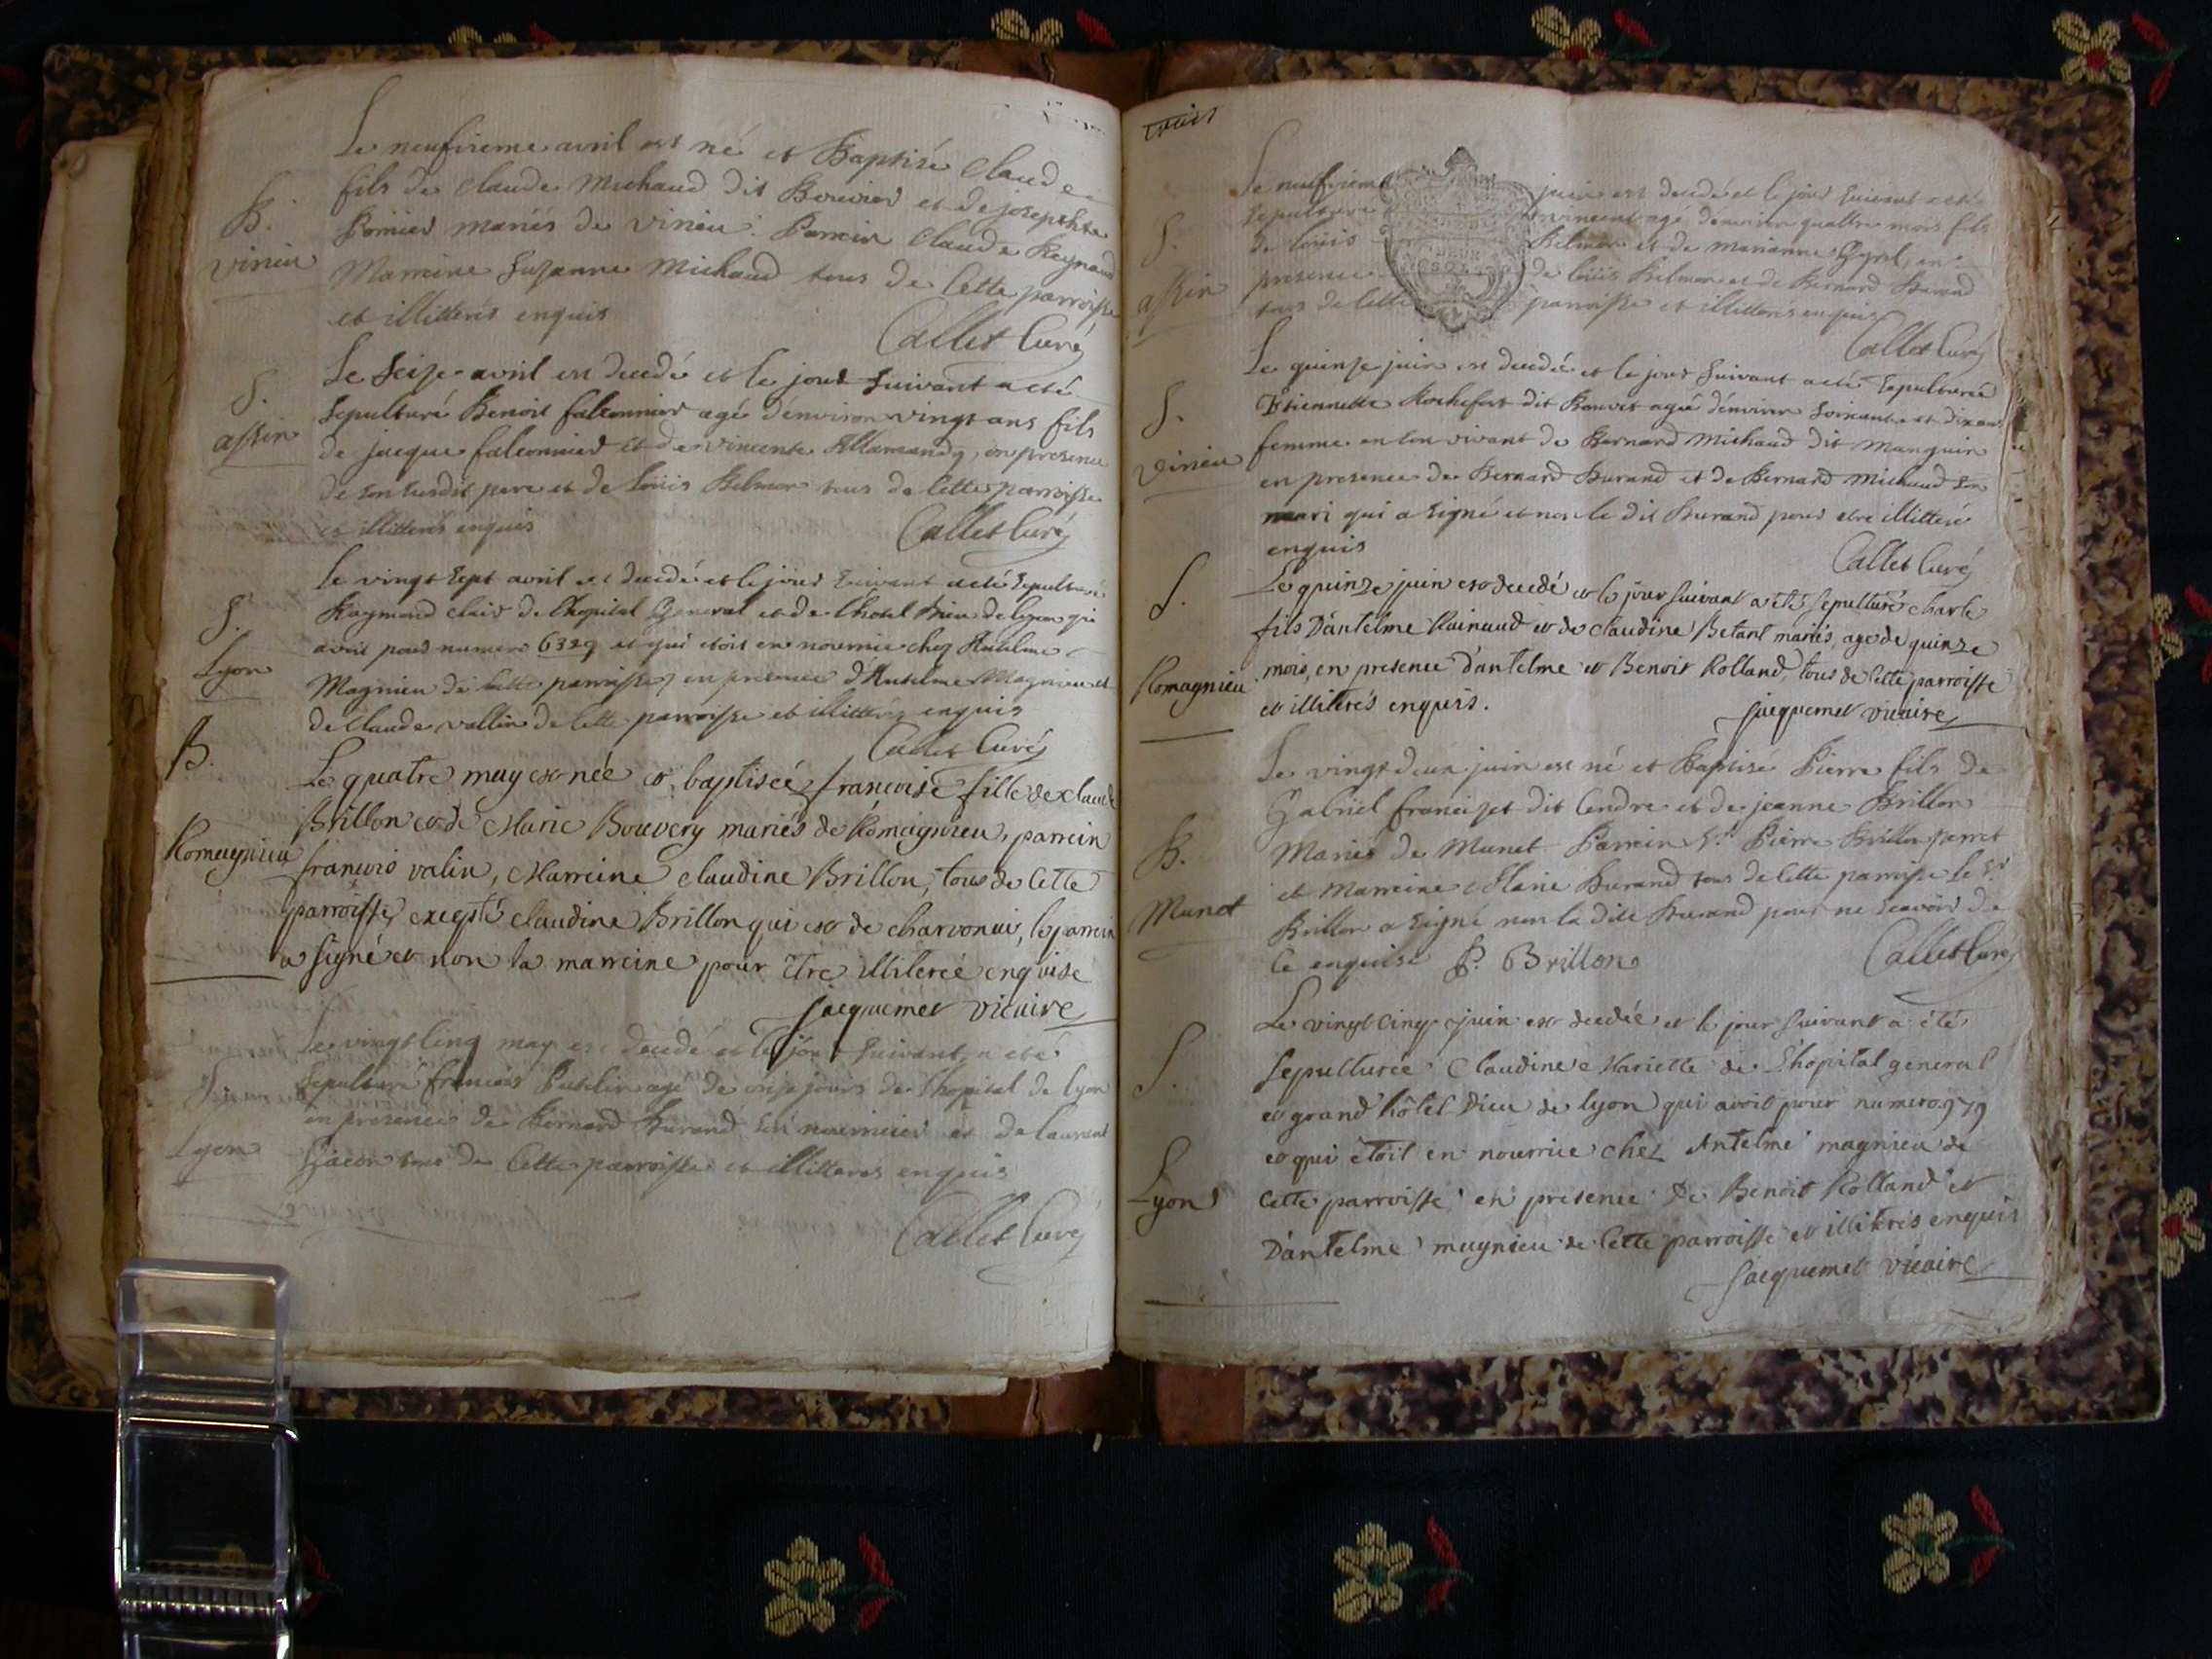 Le neufvieme avril est né et Baptisé Claude
fils de Claude Michaud dit Bouvier et de josephte
mariés de vinieu. Parrein Claude Reynaud
B.
vinieu
Marreine Suzanne Michaud tous de cette parroisse
et illitterés enquis
Callet Curé
Le Seize avril est decedé et le jour suivant a eté
S.
assin
sepulturé Benoit falconnier agé d'environ vingt ans fils
de jacque falconnier et de vincente Allamand, en presence
de son susdit pere et de Loüis Belmon tous de cette parroisse
et illitterés enquis
Callet Curé
Le vingt sept avril est decedé et le jour suivant a eté sepulturé
S.
Lyon
Raymond clair de l'hopital General et de l'hotel Dieu de lyon qui
avoit pour numero 6329 et qui etoit en nourrice chez Antelme
Magnieu de cette parroisse, en presence d'Antelme Magnieu et
de Claude vallin de cette parroisse et illitterés enquis
Callet Curé
B.
Romagnieu
Le quatre may est née et baptiseé francoise fille de claude
Brillon et de Marie Bouvery mariés de Romagnieu, parrein
francois valin, Marreine claudine Brillon, tous de cette
parroisse, excepté claudine Brillon qui est de charvonui, le parrein
a signé et non la marreine pour être illitereé enquise
jacquemet vicaire
Le vingt cinq may est decedé et le jour suivant a eté
Lyon
sepulturé francois agé de onze jours de l'hopital de lyon
en presence de Bernard Durand son nourricier et de laurent
tous de cette parroisse et illitterés enquis
Callet Curé
S.
assin
Le neufvieme juin est decedé et le jour suivant a eté
sepulturé vincent agé d'environ quattre mois fils
de loüis Belmon et de marianne en
presence de loüis Belmon et de Bernard Durand
tous de cette parroisse et illitterés enquis
Callet Curé
Le quinze juin est decedée et le jour suivant a eté sepulturée
S.
vinieu
Etiennette Rochefort dit Bouvet agée d'environ soixante et dix ans
femme en son vivant de Bernard Michaud dit Manguin
en presence de Bernard Durand et de Bernard Michaud son
mari qui a signé et non le dit Durand pour etre illitteré
enquis
Callet Curé
S.
Romagnieu
Le quinze juin est decedé et le jour suivant a eté sepulturé charle
fils D'antelme Rainaud et de claudine Betant mariés, agé de quinze
mois, en presence d'antelme et Benoit Rolland, tous de cette parroisse
et illiterés enquis.
jacquemet vicaire
Le vingt deux juin est né et Baptisé Pierre fils de
B.
Munet
Gabriel francizet dit Cendre et de jeanne Brillon
Mariés de Munet. Parrein Sr. Pierre Brillon
et Marreine Marie Durand tous de cette parroisse le Sr.
Brillon a signé non la dite Durand pour ne scavoir de
ce enquise P. Brillon
Callet Curé
Le vingt cinq juin est decedée et le jour suivant a été
S.
Lyon
sepulturée Claudine Mariette de L'hopital general
et grand hôtel Dieu de lyon qui avoit pour numero 979
et qui êtoit en nourrice chez Antelme magnieu de
cette parroisse en presence De Benoit Rolland et
D'antelme magnieu de cette parroisse et illiterés enquis
jacquemet vicaire